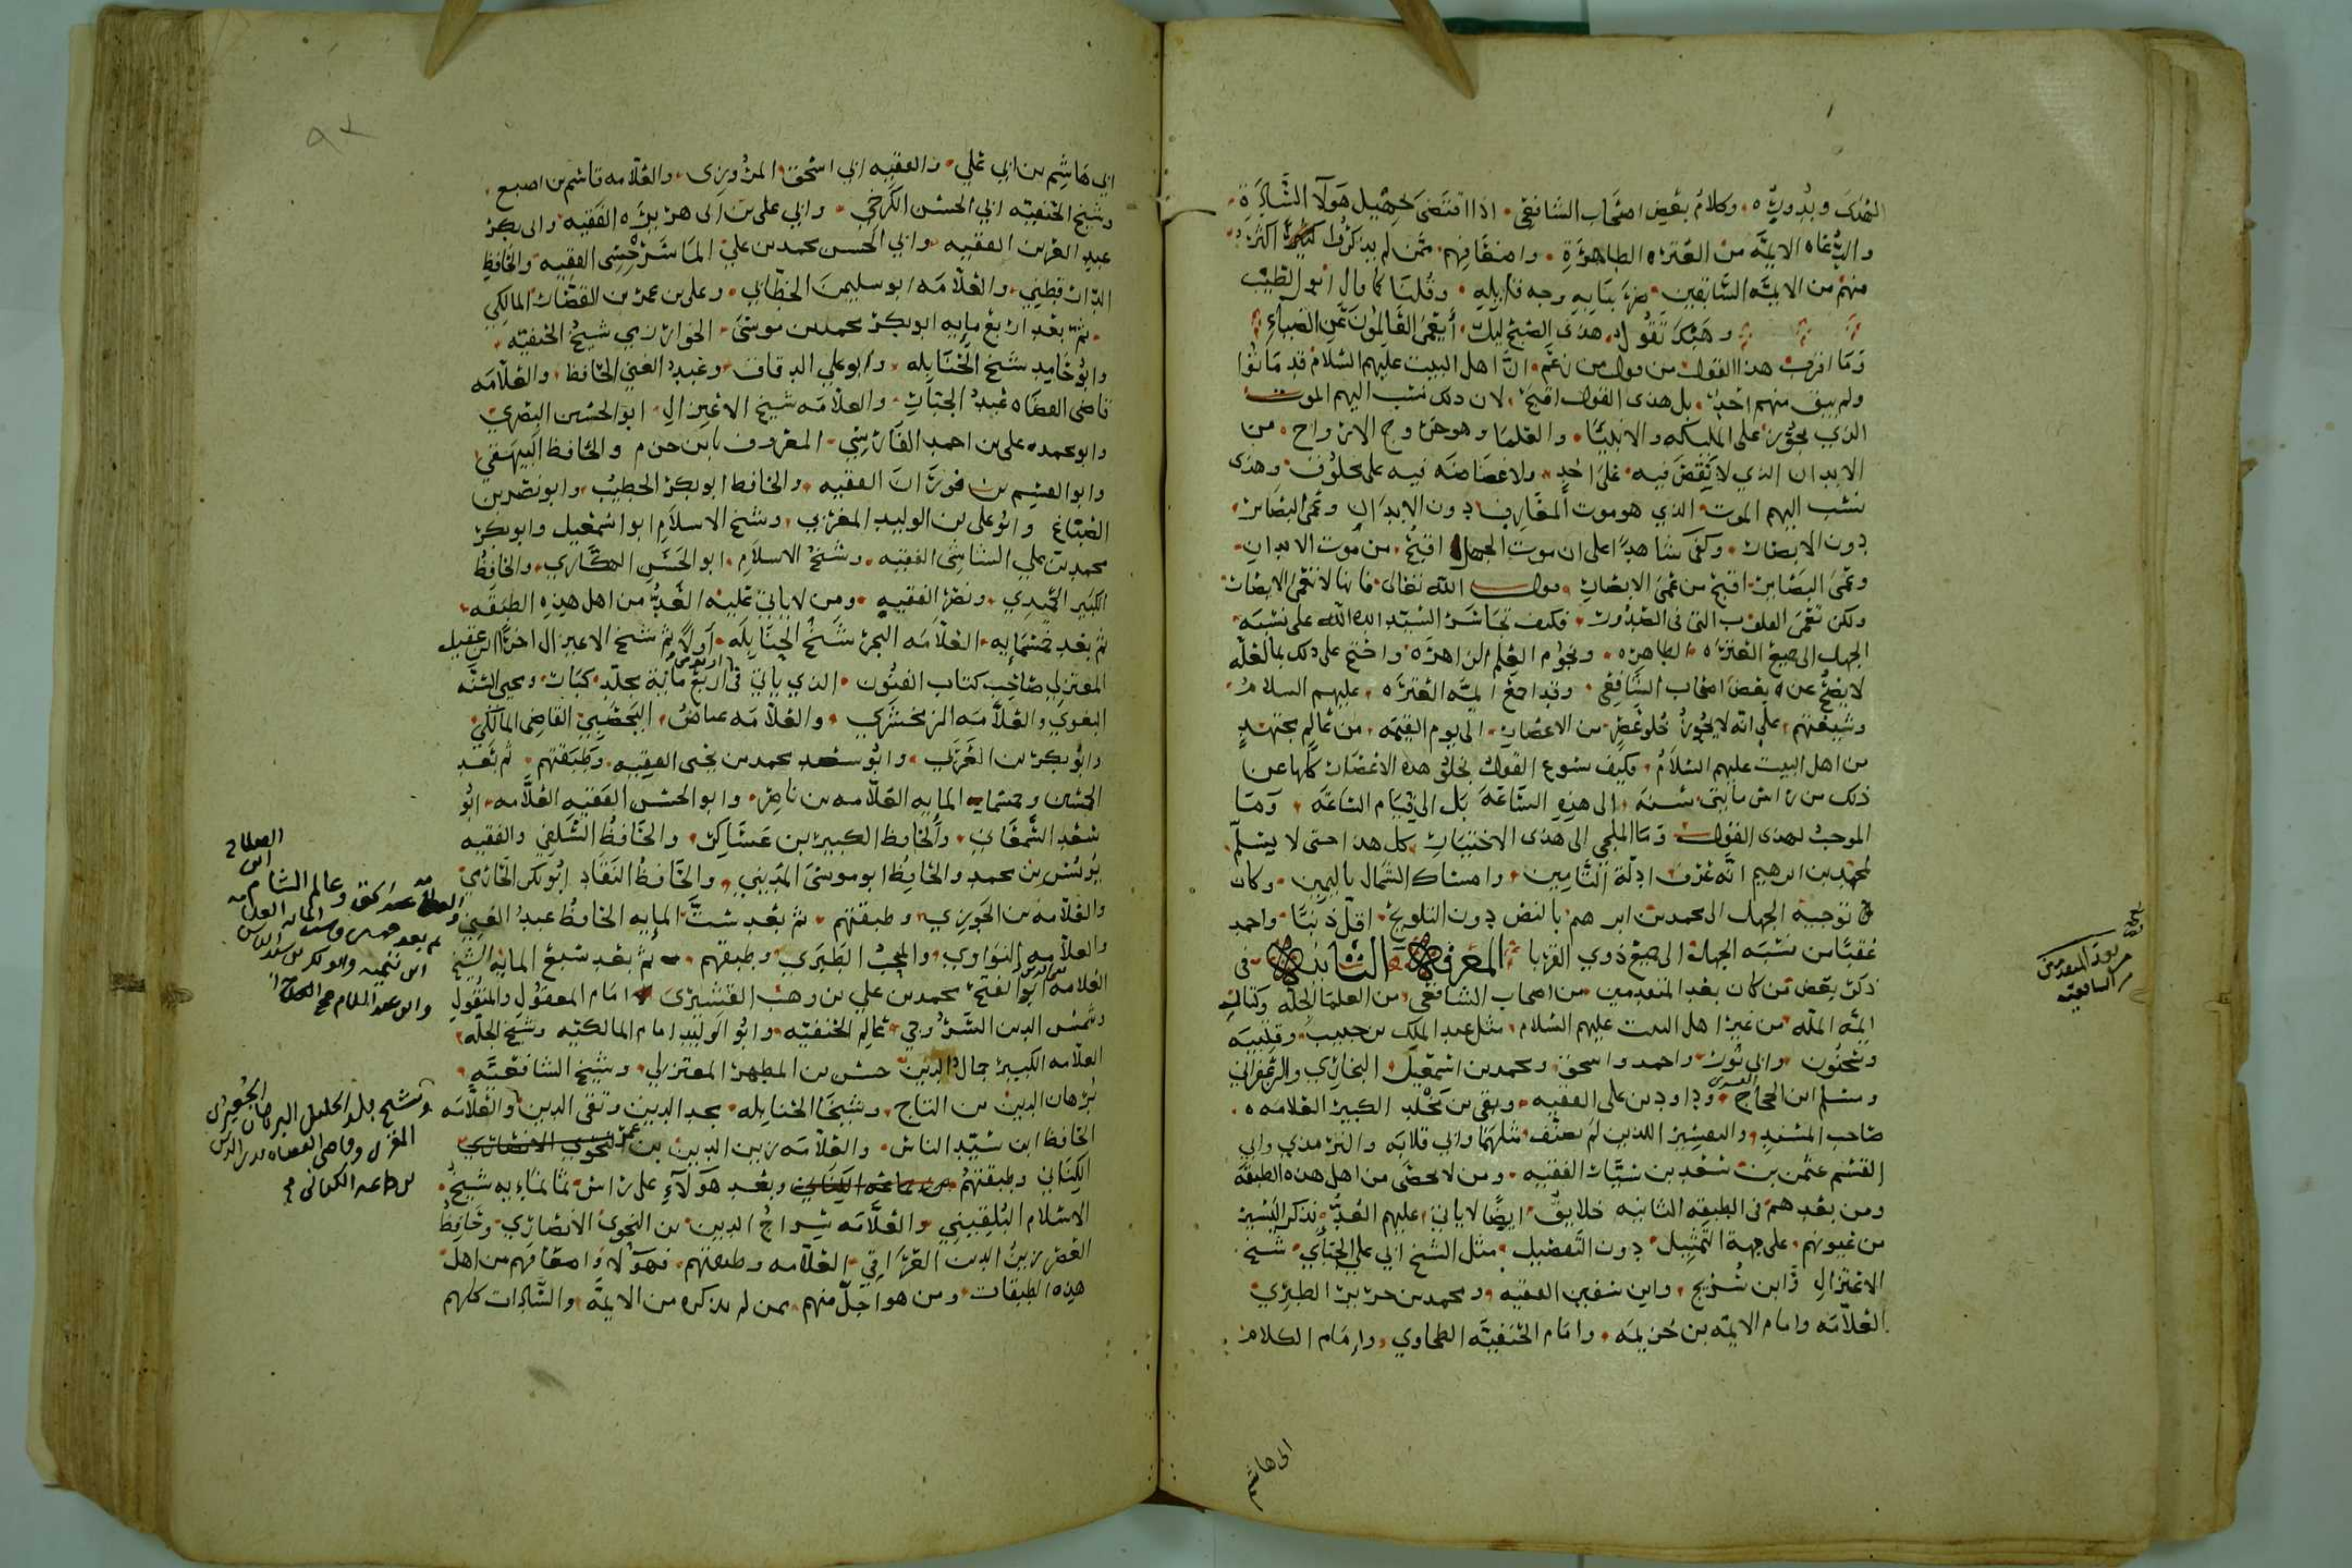 الهدى وبدوره وكلام بعض اصحاب الشافعي اذا اقتضى تجهيل هولا السادة
والدعاه الايمه من العتره الطاهرة واضعافهم ممن لم يذكروا اكثر
منهم من الايمه السابقين ضرب بنا به وجه قايله وقلنا كما قال ابو الطيب
وهبك تقول هذى الصبح ليل أيعمى العالمون عن الضياء
وما اقرب هذا القول من قول من زعم ان اهل البيت عليهم السلام قد ماتوا
ولم يبق منهم احد بل هذى القول اقبح لان ذلك نسب اليهم الموت
الذي يجوز على المليكه والانبيا والعلما وهو خروج الارواح من
الابدان الذي لا نقص فيه على احد ولا غضاضه فيه على مخلوق وهذى
نسب اليهم الموت الذي هو موت المعارف دون الابدان وعمى البصاير
دون الابصار وكفى شاهدا على ان موت الجهل اقبح من موت الابدان
وعمى البصاير اقبح من عمى الابصار قول الله تعالى فانها لا تعمى الابصار
ولكن تعمى القلوب التي في الصدور فكيف تجاسر السيد ايده الله على نسبة
الجهل الى جميع العترة الطاهره ونجوم العلم الزاهره واحتج على ذلك بما لعله
لا يصح عن بعض اصحاب الشافعي وقد اجمع ايمة العتره عليهم السلام
وشيعتهم على انه لا يجوز خلو عصر من الاعصار الى يوم القيمه من عالم مجتهد
من اهل البيت عليهم السلام فكيف يسوغ القول بخلو هذه الاعصار كلها عن
ذلك من راس مايتي سنة الى هذه الساعة بل الى قيام الساعة وما
الموجب لهذى القول وما الملجي الى هذى الاختيار كل هذا حتى لا يسلم
لمحمد بن ابرهيم انه عرف ادلة التامين وامساك الشمال باليمين وكان
توجيه الجهل الى محمد بن ابرهيم بالنص دون التلويح اقل ذنبا واحمد
عقبا من نسبة الجهل الى جميع ذوي القربا المعرفة الثانية في
ذكر بعض من كان بعد المتقدمين من اصحاب الشافعي من العلما الجله وكبار
ايمة المله من غير اهل البيت عليهم السلام مثل عبد الملك بن حبيب وقتيبه
وسحنون وابي ثور واحمد واسحق ومحمد بن اسمعيل البخاري والزعفراني
ومسلم ابن الحجاج وداود بن علي الفقيه وبقي بن مخلد الكبير العلامه
صاحب المسند والتفسير اللذين لم يصنف مثلهما وابي قلابه والترمذي وابي
القسم عثمن بن سعيد بن بشار الفقيه ومن لا يحصى من اهل هذه الطبقه
ومن بعدهم في الطبقه الثانيه خلايق ايضا لا ياتي عليهم العد نذكر اليسير
من عيونهم على جهة التمثيل دون التفصيل مثل الشيخ ابي علي الجبائي شيخ
الاعتزال وابن شريح وابن سفين الفقيه ومحمد بن جرير الطبري
العلامه وامام الايمه بن خزيمه وامام الحنفيه الطحاوي وامام الكلام
ابي هاشم
ابي هاشم بن ابي علي والفقيه ابي اسحق المروزي والعلامه قاسم بن اصبع
وشيخ الحنفيه ابي الحسن الكرخي وابي علي بن ابي هريره الفقيه وابي بكر
عبد العزيز الفقيه وابي الحسن محمد بن علي الماسرجسي الفقيه والحافظ
الدارقطني والعلامه ابو سليمن الخطابي وعلي بن عمر بن القصار المالكي
ثم بعد اربع مايه ابو بكر محمد بن موسى الخوارزمي شيخ الحنفيه
وابو حامد شيخ الحنابله وابو علي الدقاق وعبد الغني الحافظ والعلامه
قاضي القضاه عبد الجبار والعلامه شيخ الاعتزال ابو الحسين البصري
وابو محمد علي بن احمد الفارسي المعروف بابن حزم والحافظ البيهقي
وابو القسم بن فوران الفقيه والحافظ ابو بكر الخطيب وابو نصر بن
الصباغ وابو علي بن الوليد المغربي وشيخ الاسلام ابو اسمعيل وابو بكر
محمد بن علي الشاشي الفقيه وشيخ الاسلام ابو الحسن الهكاري والحافظ
الكبير الحميدي ونصر الفقيه ومن لا ياتي عليه العد من اهل هذه الطبقه
ثم بعد خمسمايه العلامه البحر شيخ الحنابله اولا ثم شيخ الاعتزال اخرا ابن عقيل
المعتزلي صاحب كتاب الفنون الذي ياتي في اربع ماية مجلد كبار ومحيي السنه
البغوي والعلامه الزمخشري والعلامه عياض اليحصبي القاضي المالكي
وابو بكر بن العربي وابو سعد محمد بن يحيى الفقيه وطبقتهم ثم بعد
الخمسين وخمسمايه العلامه بن ناصر وابو الحسن الفقيه العلامه ابو
سعد السمعاني والحافظ الكبير ابن عساكر والحافظ السلفي والفقيه
يونس بن محمد والحافظ ابو موسى المديني والحافظ النقاد ابو بكر الحازمي
والعلامه بن الجوزي وطبقتهم ثم بعد ست المايه الحافظ عبد الغني
والعلامه النواوي والمحب الطبري وطبقتهم ثم بعد سبع المايه الشيخ
العلامه ابو الفتح محمد بن علي بن وهب القشيري امام المعقول والمنقول
وشمس الدين السروجي عالم الحنفيه وابو الوليد امام المالكيه وشيخ الجله
العلامه الكبير جمال الدين حسن بن المطهر المعتزلي وشيخ الشافعيه
برهان الدين بن التاج وشيخا الحنابله مجد الدين وتقي الدين والعلامه
الحافظ ابن سيد الناس والعلامه زين الدين بن
الكناني وطبقتهم وبعد هولاء على راس ثمانمايه شيخ
الاسلام البلقيني والعلامه سراج الدين بن النحوي الانصاري وحافظ
العصر زين الدين العراقي العلامه وطبقتهم فهولا واضعافهم من اهل
هذه الطبقات ومن هو اجل منهم ممن لم نذكره من الايمه والسادات كلهم
وعالم الشام
وشيخ بلد الخليل البرهان الجعبري
وقاضي القضاه بدر الدين
بن جماعه الكناني